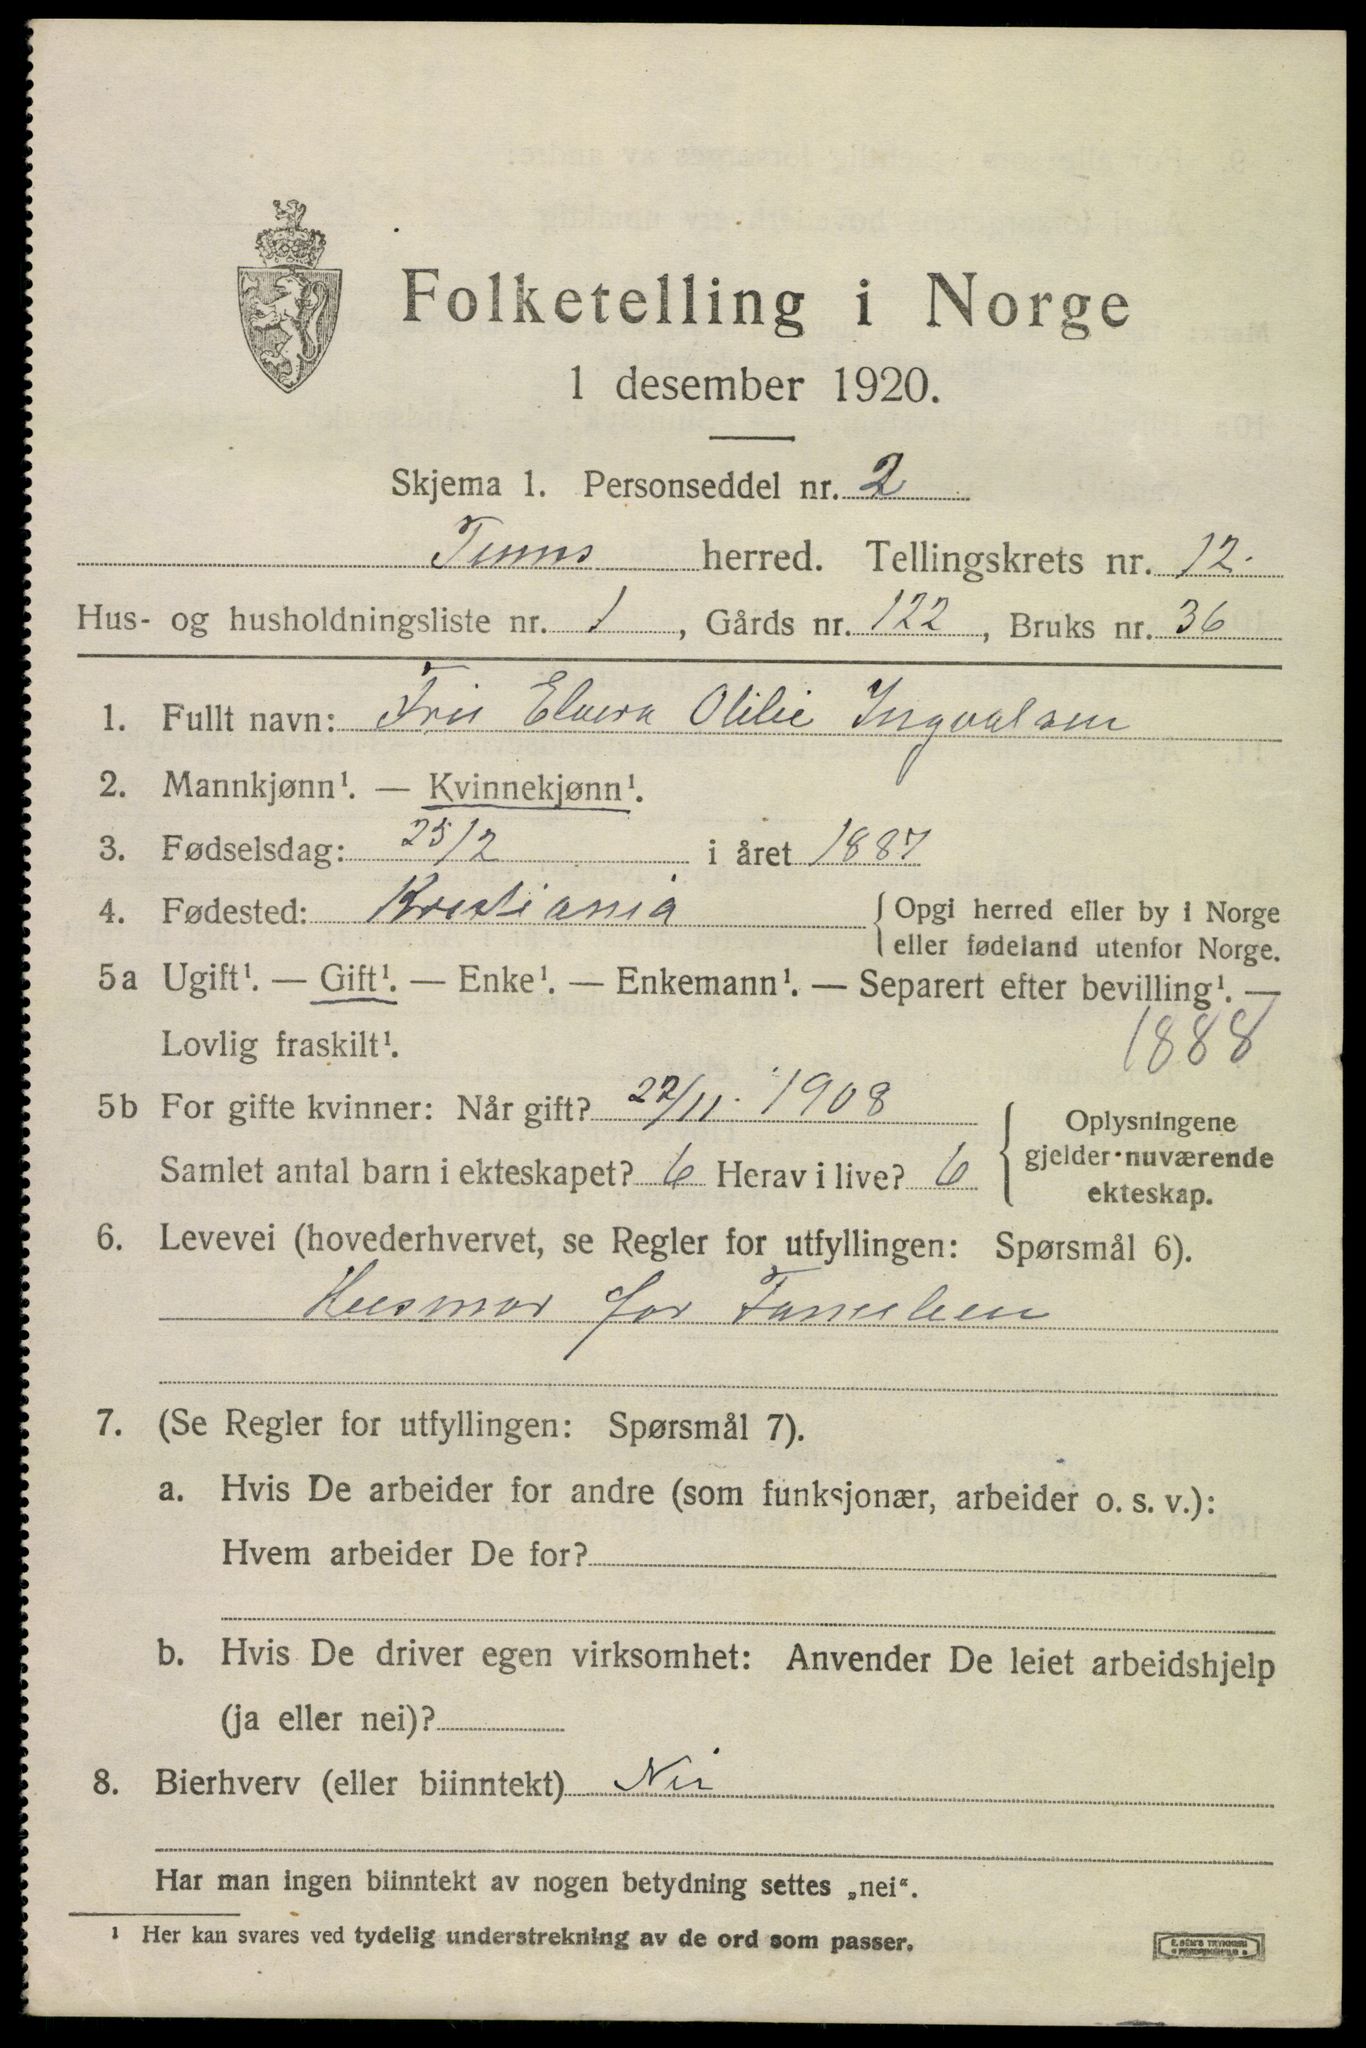 Folketelling i Norge
1 desember 1920.
Skjema 1. Personseddel nr. 2
herred. Tellingskrets nr. 12.
Hus- og husholdningsliste nr. 1, Gårds nr. 122, Bruks nr. 36
1. Fullt navn: Elvera Otilie Ingvalsen
2. Mannkjønn¹. — Kvinnekjønn¹.
3. Fødselsdag: 25/2 i året 1887
4. Fødested: Kristiania { Opgi herred eller by i Norge
eller fødeland utenfor Norge.
5a Ugift¹. — Gift¹. — Enke¹. — Enkemann¹. — Separert efter bevilling¹. —
Lovlig fraskilt¹. 1888
5b For gifte kvinner: Når gift? 22/11. 1908
Samlet antal barn i ekteskapet? 6 Herav i live? 6
{ Oplysningene
gjelder nuværende
ekteskap.
6. Levevei (hovederhvervet, se Regler for utfyllingen: Spørsmål 6).
Husmor for Familien
7. (Se Regler for utfyllingen: Spørsmål 7).
a. Hvis De arbeider for andre (som funksjonær, arbeider o. s. v.):
Hvem arbeider De for?
b. Hvis De driver egen virksomhet: Anvender De leiet arbeidshjelp
(ja eller nei)?
8. Bierhverv (eller biinntekt) Nei
Har man ingen biinntekt av nogen betydning settes „nei“.
¹ Her kan svares ved tydelig understrekning av de ord som passer.
E. SEM'S TRYKKERI
FREDRIKSHALD